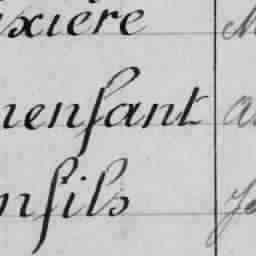 ixière
nenfant
nfils